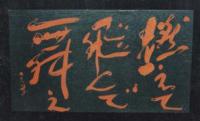 燃えて
飛んで
舞え